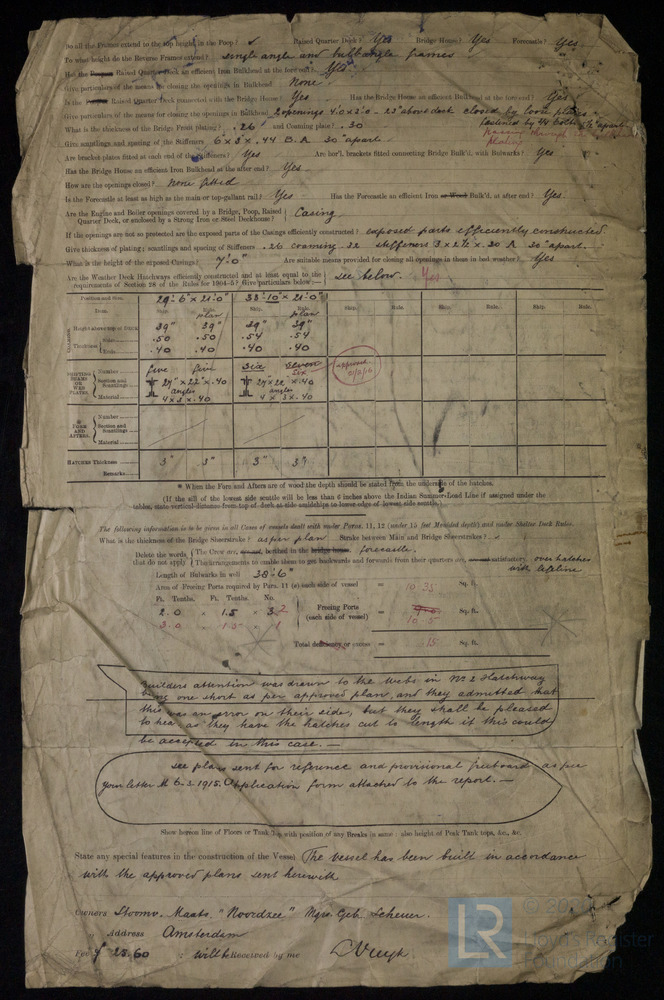 Do all the Frames extend to the top height in the Poop? ✓ Raised Quarter Deck? Yes Bridge House? Yes Forecastle? Yes
To what height do the Reverse Frames extend? single angle and bulb angle frames
Has the Raised Quarter Deck an efficient Iron Bulkhead at the fore end? Yes
Give particulars of the means for closing the openings in Bulkhead None
Is the Raised Quarter Deck connected with the Bridge House? Yes Has the Bridge House an efficient Bulkhead at the fore end? Yes
Give particulars of the means for closing the openings in Bulkhead 2 openings 4'0 x 2'0 - 23" above deck closed by loose plates
fastened by 3/4 bolts apart
What is the thickness of the Bridge Front plating? .26 and Coaming plate? .30
Give scantlings and spacing of the Stiffeners 6 x 3 x .44 B.A 30" apart
Are bracket plates fitted at each end of the Stiffeners? Yes Are hor'l. brackets fitted connecting Bridge Bulk'd. with Bulwarks? Yes
Has the Bridge House an efficient Iron Bulkhead at the after end? Yes
How are the openings closed? None fitted
Is the Forecastle at least as high as the main or top-gallant rail? Yes Has the Forecastle an efficient Iron or Wood Bulk'd. at after end? Yes
Are the Engine and Boiler openings covered by a Bridge, Poop, Raised
Quarter Deck, or enclosed by a Strong Iron or Steel Deckhouse? Casing
If the openings are not so protected are the exposed parts of the Casings efficiently constructed? exposed parts efficiently constructed
Give thickness of plating; scantlings and spacing of Stiffeners .26 coaming .32 stiffeners 3 x 2½ x .30 A 30" apart
What is the height of the exposed Casings? 7'0" Are suitable means provided for closing all openings in them in bad weather? Yes
Are the Weather Deck Hatchways efficiently constructed and at least equal to the
requirements of Section 28 of the Rules for 1904-5? Give particulars below:— see below. Yes
Position and Size. 29'-6" x 21'0" 33'-10" x 21'0"
Item. Ship. Rule. Ship. Rule. Ship. Rule. Ship. Rule.
plan plan
COAMINGS Height above top of Deck 39" 39" 39" 39"
Thickness Sides .50 .50 .54 .54
Ends .40 .40 .40 .40
SHIFTING BEAMS OR WEB PLATES Number five five six seven
six
Section and Scantlings 27" x 22" x .40 27" x 22" x .40
angles angles
Material 4 x 3 x .40 4 x 3 x .40
approved
* FORE AND AFTERS. Number
Section and Scantlings
Material
HATCHES Thickness 3" 3" 3" 3"
Remarks
* When the Fore and Afters are of wood the depth should be stated from the underside of the hatches.
(If the sill of the lowest side scuttle will be less than 6 inches above the Indian Summer Load Line if assigned under the
tables, state vertical distance from top of deck at side amidships to lower edge of lowest side scuttle.
The following information is to be given in all Cases of vessels dealt with under Paras. 11, 12 (under 15 feet Moulded depth) and under Shelter Deck Rule.
What is the thickness of the Bridge Sheerstrake? as per plan Strake between Main and Bridge Sheerstrakes?
Delete the words that do not apply The Crew are, are not, berthed in the bridge house. forecastle.
The arrangements to enable them to get backwards and forwards from their quarters are, are not satisfactory. over hatches
with lifeline
Length of Bulwarks in well 38'6"
Area of Freeing Ports required by Para. 11 (e) each side of vessel = 10.35 Sq. ft.
Ft. Tenths. Ft. Tenths. No.
2.0 x 1.5 x 3 2 Freeing Ports
3.0 x 1.5 x 1 (each side of vessel) = 10.5 Sq. ft.
Total deficiency or excess = .15 Sq. ft.
Builders attention was drawn to the webs in No 2 Hatchway
being one short as per approved plan, and they admitted that
this was an error on their side, but they shall be pleased
to hear as they have the hatches cut to length if this could
be accepted in this case. —
see plans sent for reference and provisional freeboard as per
your letter M 6.3.1915. Application form attached to the report. —
Show hereon line of Floors or Tank Top with position of any Breaks in same: also height of Peak Tank tops, &c., &c.
State any special features in the construction of the Vessel The vessel has been built in accordance
with the approved plans sent herewith
Owners Stoomv. Maats. "Noordzee" Mgrs. Geb. Scheuer.
" Address Amsterdam
Fee ƒ 25.60 : will be Received by me
LR
Lloyd's Register
Foundation